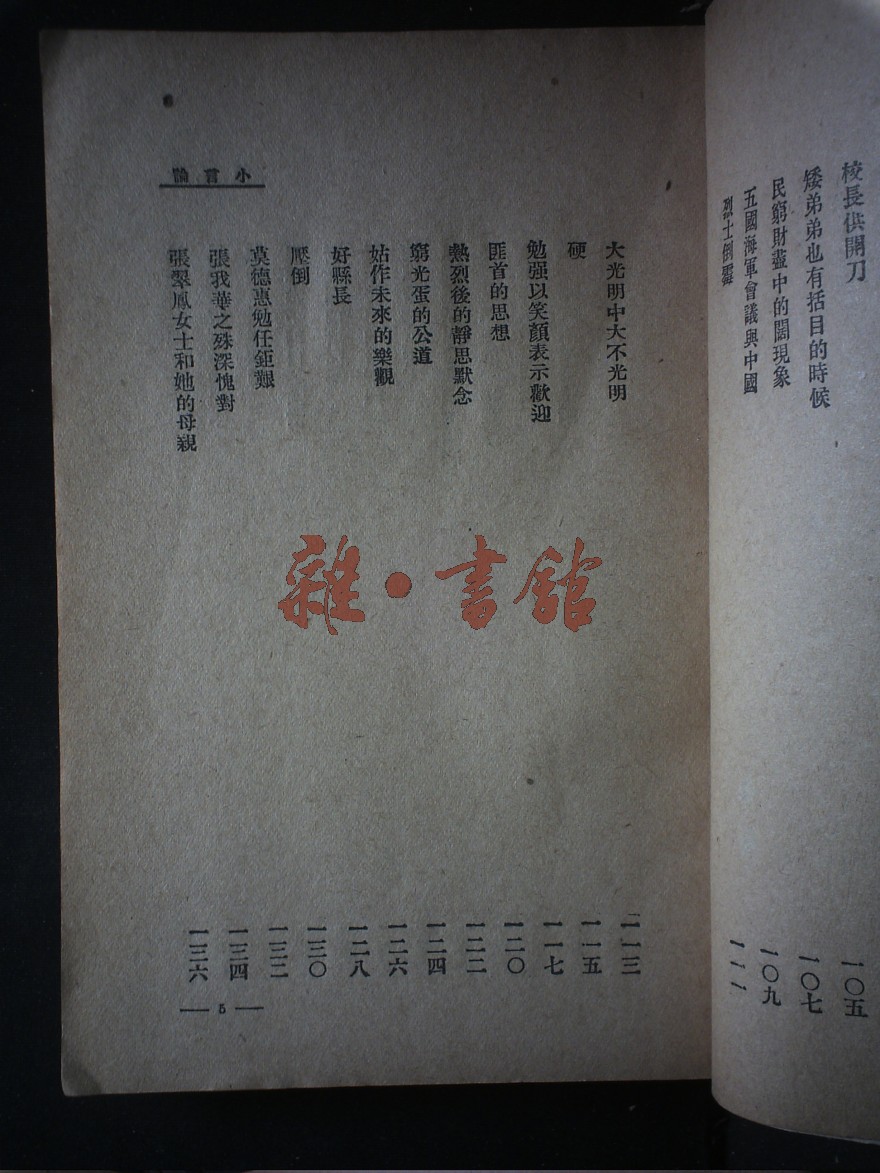 校長供開刀 一〇五
矮弟弟也有括目的時候 一〇七
民窮財盡中的闊現象 一〇九
五國海軍會議與中國 一一一
烈士倒霉
小言論
大光明中大不光明 一一三
硬 一一五
勉强以笑顏表示歡迎 一一七
匪首的思想 一二〇
熱烈後的靜思默念 一二二
窮光蛋的公道 一二四
姑作未來的樂觀 一二六
好縣長 一二八
壓倒 一三〇
莫德惠勉任鉅艱 一三二
張我華之殊深愧對 一三四
張翠鳳女士和她的母親 一三六
— 5 —
雜·書館